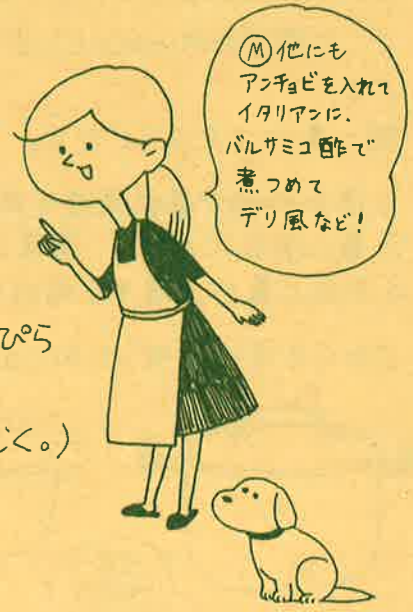 Ⓜ他にも
アンチョビを入れて
イタリアンに、
バルサミコ酢で
煮つめて
デリ風など！
ぴら
く。)